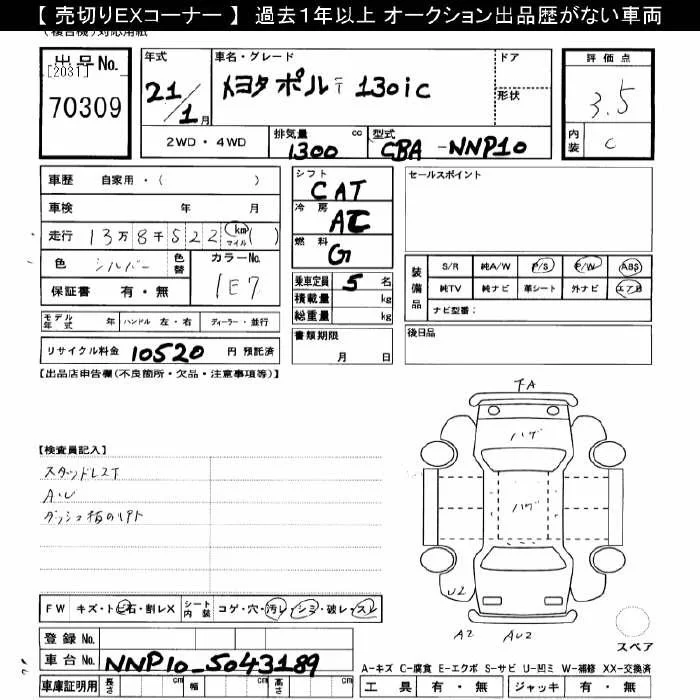 【 売切りEXコーナー 】 過去1年以上 オークション出品歴がない車両
(複合機)対応用紙
出品No. [2031] 70309
年式 21/1月
車名・グレード トヨタ ポルテ 130ic
ドア
形状
評価点 3.5
内装 C
2WD・4WD
排気量 1300 cc
型式 CBA-NNP10
車歴 自家用・( )
車検 年 月
走行 13万8千522 (km マイル)( )
色 シルバー 色替
カラーNo. 1E7
保証書 有・無
モデル年式 年 ハンドル 左・右 ディーラー・並行
リサイクル料金 10520 円 預託済
シフト CAT
冷房 AC
燃料 G
乗車定員 5 名
積載量 kg
総重量 kg
書類期限 月 日
セールスポイント
装備品 S/R 純A/W P/S P/W ABS
純TV 純ナビ 革シート 外ナビ エアB
ナビ型番:
後日品
【出品店申告欄(不良箇所・欠品・注意事項等)】
【検査員記入】
スタッドレスT
A.U
ダッシュ
FA
ハゲ
ハゲ
U2
A2
AU2
スペア
FW キズ・トビ石・割レX シート内装 コゲ・穴・汚レ・シミ・破レ・スレ
登録 No.
車台 No. NNP10-5043189
車庫証明用 長さ cm 幅 cm 高さ cm
A-キズ C-腐食 E-エクボ S-サビ U-凹ミ W-補修 XX-交換済
工具 有・無 ジャッキ 有・無